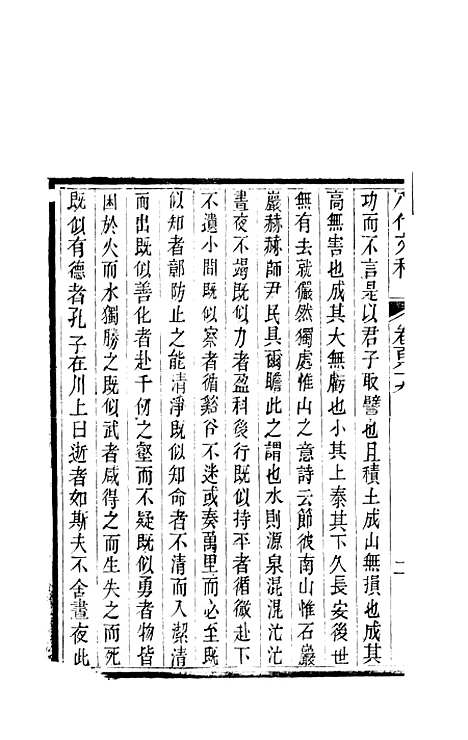 八代文粹
卷百十六
二
功而不言是以君子取譬也且積土成山無損也成其
高無害也成其大無虧也小其上泰其下久長安後世
無有去就儼然獨處惟山之意詩云節彼南山惟石巖
巖赫赫師尹民具爾瞻此之謂也水則源泉混混沄沄
晝夜不竭既似力者盈科後行既似持平者循微赴下
不遺小間既似察者循谿谷不迷或奏萬里而必至既
似知者鄣防止之能清淨既似知命者不清而入潔清
而出既似善化者赴千仞之壑而不疑既似勇者物皆
困於火而水獨勝之既似武者咸得之而生失之而死
既似有德者孔子在川上曰逝者如斯夫不舍晝夜此